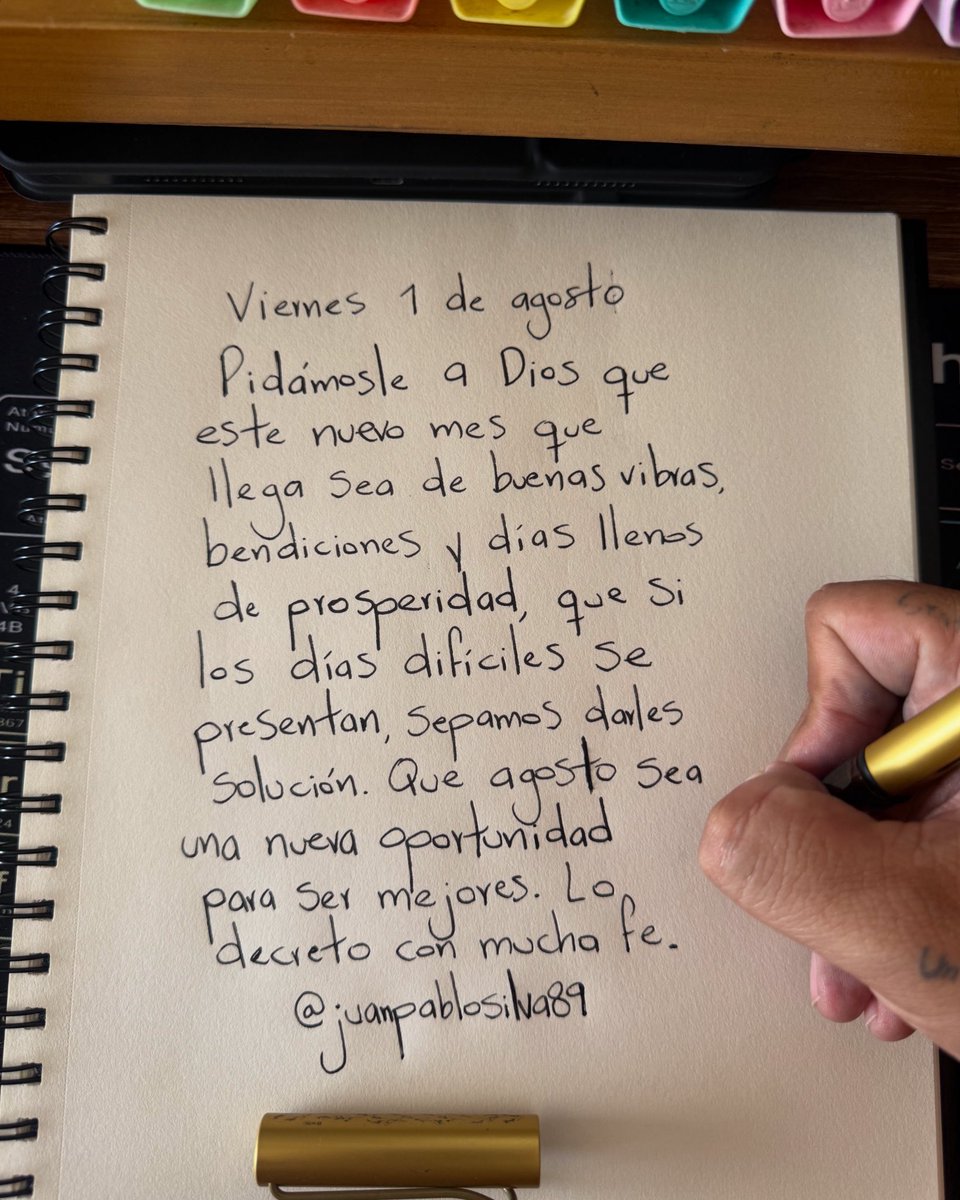 Viernes 1 de agosto
Pidámosle a Dios que
este nuevo mes que
llega sea de buenas vibras,
bendiciones y días llenos
de prosperidad, que si
los días difíciles se
presentan, sepamos darles
solución. Que agosto sea
una nueva oportunidad
para ser mejores. Lo
decreto con mucha fe.
@juanpablosilva89